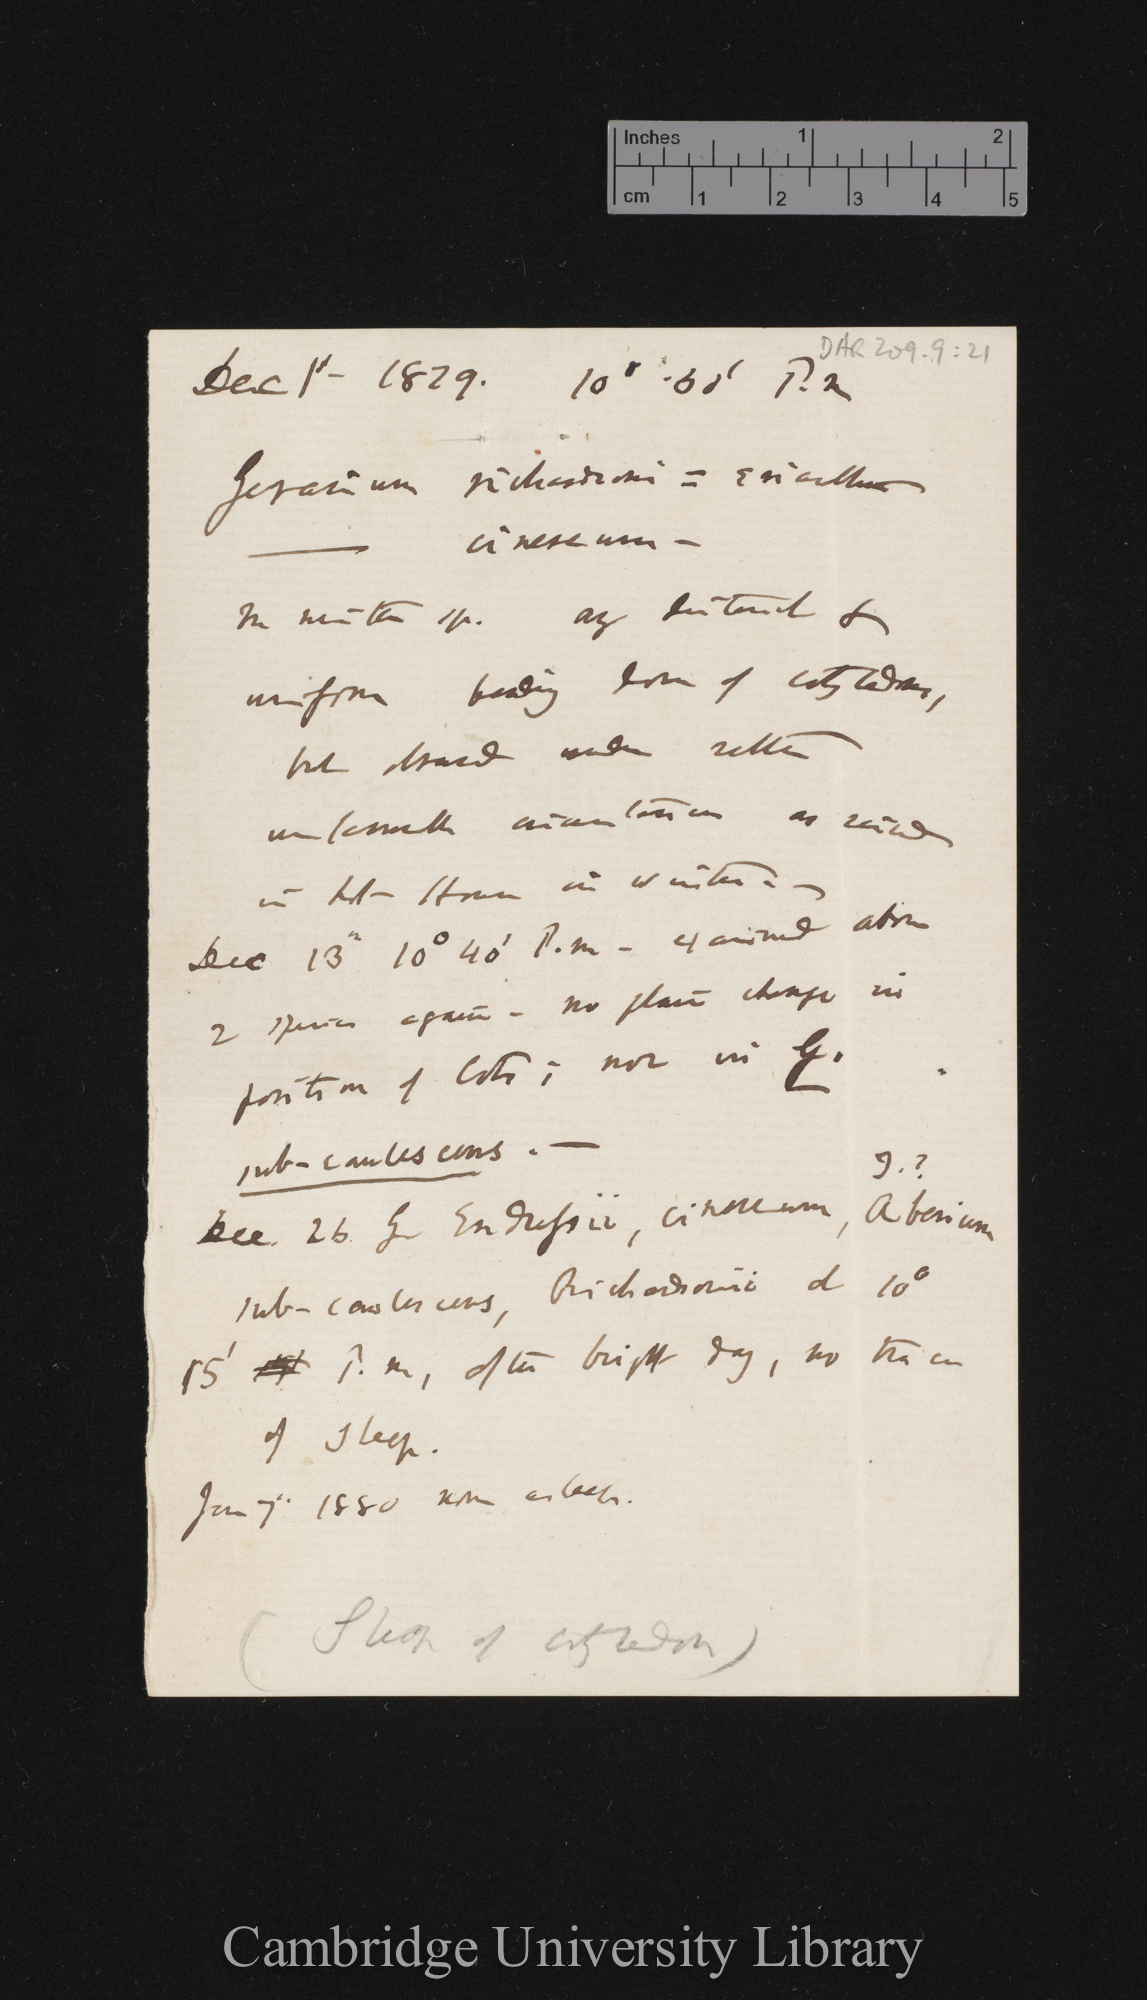 Inches 1 2
cm 1 2 3 4 5
DAR 209.9:21
Dec 1st – 1879. 10° P.m
Geranium richardsoni =
——— cinereum –
In neither sp. any distinct &
uniform bending down of cotyledons,
but observed under rather
unfavourable as raised
in hot House in winter. –
Dec 13th 10° 40' P.m – examined above
2 species again – no plain change in
position of Cots; nor in G.
sub-caulescens. —
G.?
Dec. 26 G Endressii, cinereum, Aberium
sub-caulescens, Richardsonii at 10°
15' P.m, after bright day, no trace
of Sleep.
Jan 7th 1880 none asleep.
(Sleep of cotyledon)
Cambridge University Library